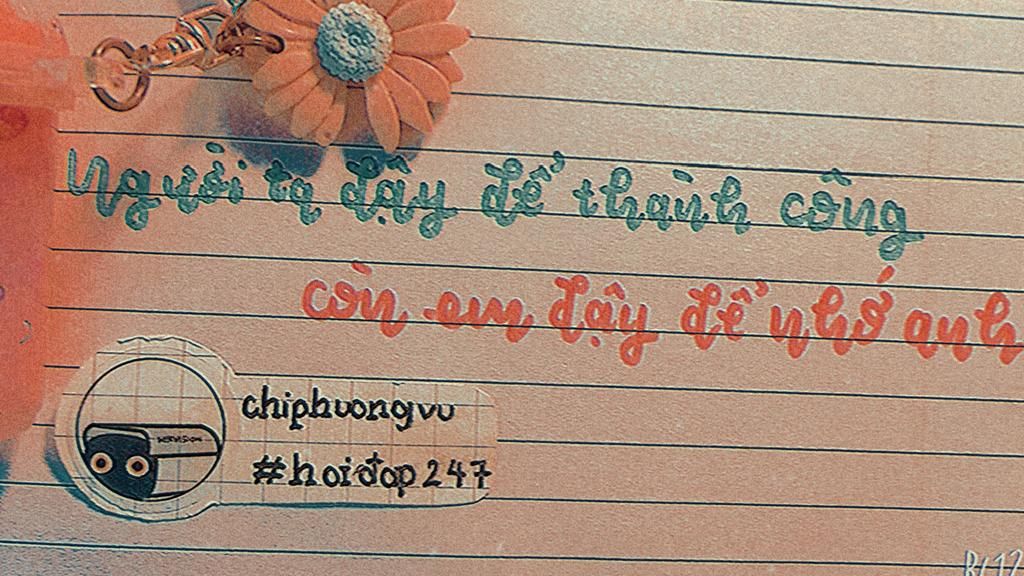 Người ta dậy để thành công
còn em dậy để nhớ anh
chiphuongvu
#hoiđap247